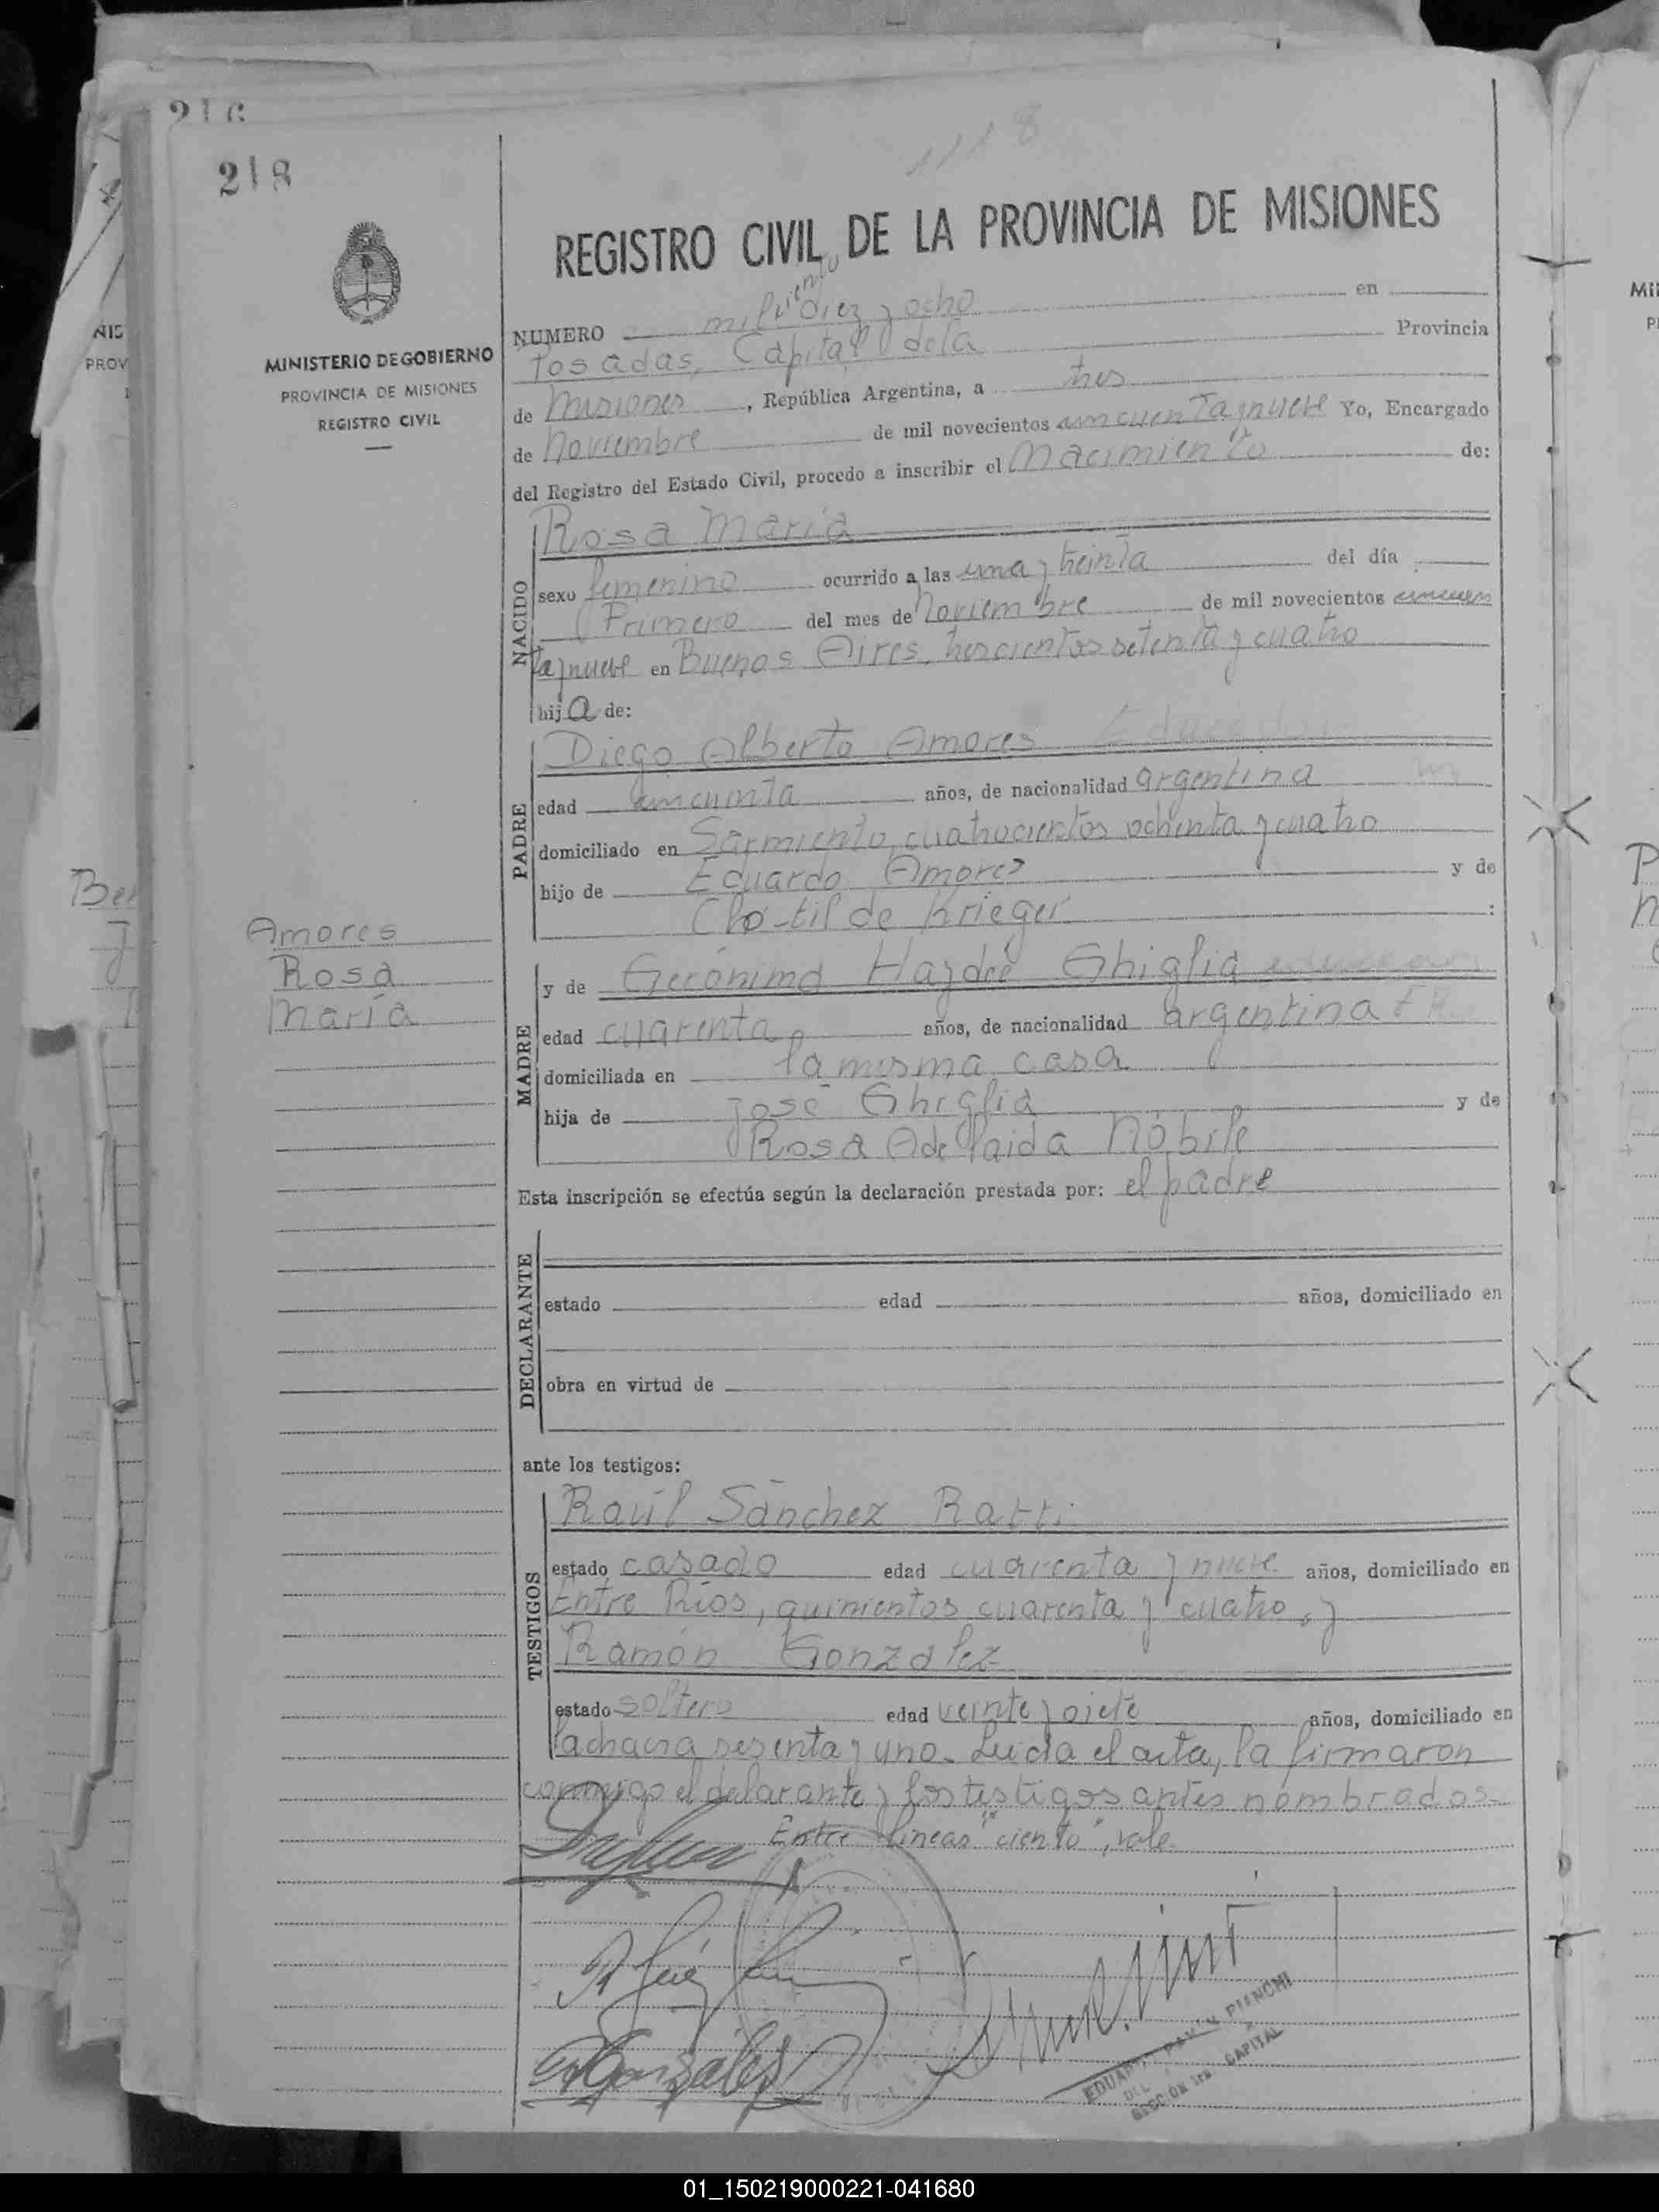 216
218
1118
REGISTRO CIVIL DE LA PROVINCIA DE MISIONES
MINISTERIO DE GOBIERNO
PROVINCIA DE MISIONES
REGISTRO CIVIL
ciento
NUMERO mil diez y ocho en
Posadas, Capital de la Provincia
de Misiones, República Argentina, a tres
de Noviembre de mil novecientos cincuenta y nueve Yo, Encargado
del Registro del Estado Civil, procedo a inscribir el Nacimiento de:
NACIDO
Rosa María
sexo femenino ocurrido a las una y treinta del día
Primero del mes de Noviembre de mil novecientos cincuen
ta y nueve en Buenos Aires, trescientos setenta y cuatro
hija de:
PADRE
Diego Alberto Amores
edad cincuenta años, de nacionalidad argentina
domiciliado en Sarmiento, cuatrocientos ochenta y cuatro
hijo de Eduardo Amores y de
Clo-tilde Krieger :
Amores
Rosa
María
MADRE
y de Gerónima Haydée Ghiglia
edad cuarenta años, de nacionalidad argentina
domiciliada en la misma casa
hija de José Ghiglia y de
Rosa Adelaida Nóbile
Esta inscripción se efectúa según la declaración prestada por: el padre
DECLARANTE
estado edad años, domiciliado en
obra en virtud de
ante los testigos:
TESTIGOS
Raúl Sánchez Ratti
estado casado edad cuarenta y nueve años, domiciliado en
Entre Ríos, quinientos cuarenta y cuatro, y
Ramón González
estado soltero edad veinte y siete años, domiciliado en
la chacra sesenta y uno. Leída el acta, la firmaron
conmigo el declarante y los testigos antes nombrados.
Entre líneas "ciento", vale.
R González
SECCIÓN 1ra. CAPITAL
01_150219000221-041680